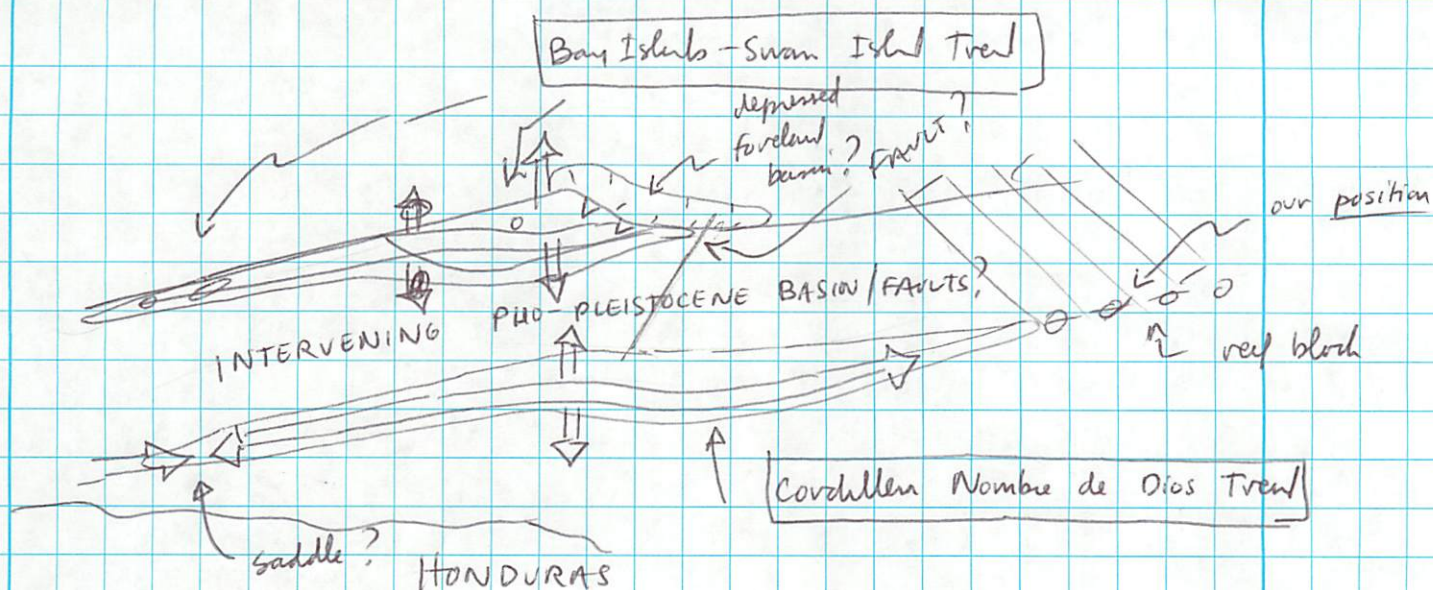 Bay Islands - Swan Island Trend
depressed
foreland
basin?
FAULT?
our position
INTERVENING PLIO-PLEISTOCENE BASIN/FAULTS?
reef block
Cordillera Nombre de Dios Trend
saddle?
HONDURAS